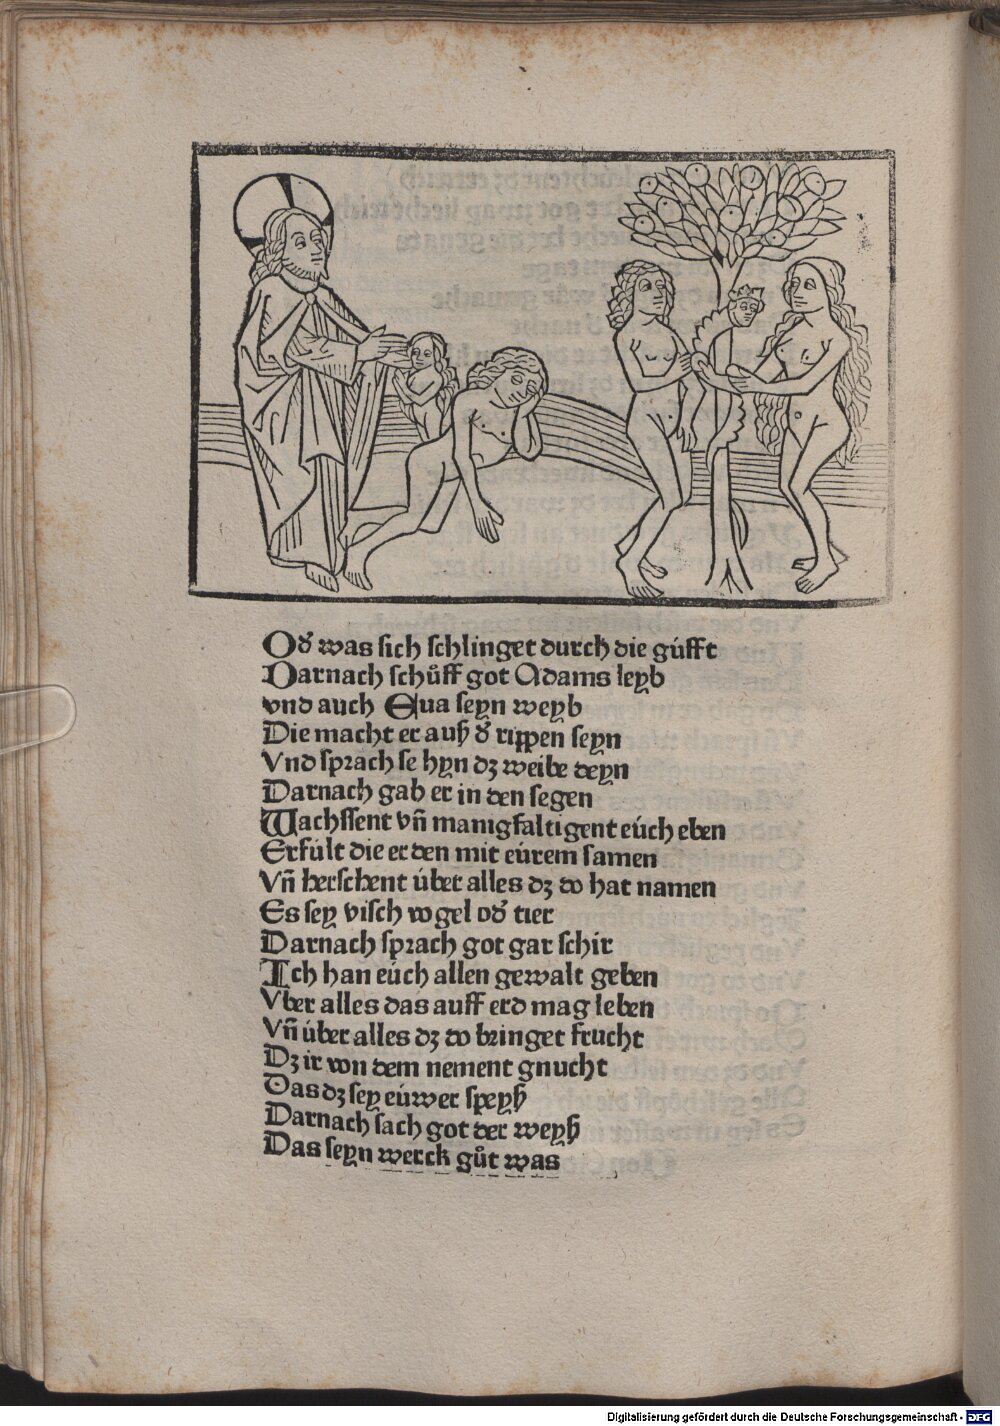 Od᷑ was sich schlinget durch die gúfft
Darnach schůff got Adams leyb
vnd auch Eua seyn weyb
Die macht er auß d᷑ rippen seyn
Vnd sprach se hyn dz weibe deyn
Darnach gab er in den segen
Wachssent vn̄ manigfaltigent eúch eben
Erfúlt die erden mit eúrem samen
Vn̄ herschent úber alles dz do hat namen
Es sey visch vogel od᷑ tier
Darnach sprach got gar schir
Ich han eúch allen gewalt geben
Vber alles das auff erd mag leben
Vn̄ úber alles dz do bringet frucht
Dz ir von dem nement gnucht
Das dz sey eúwer speyß
Darnach sach got der weyß
Das seyn werck gůt was
Digitalisierung gefördert durch die Deutsche Forschungsgemeinschaft - DFG